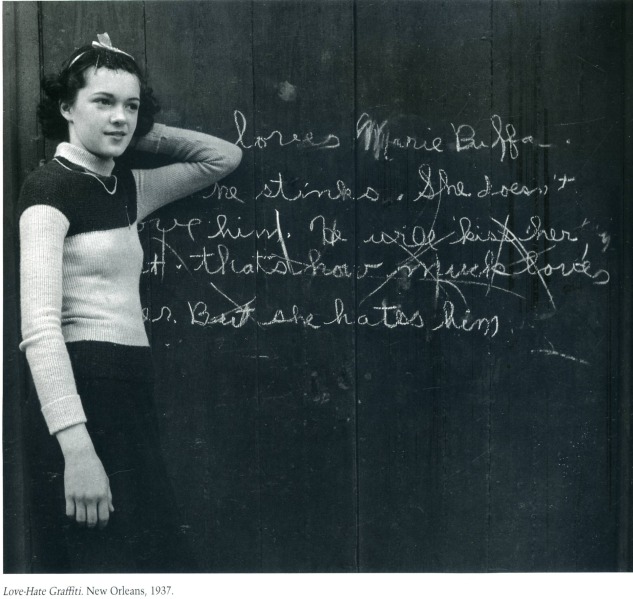 loves Marie Buffa.
he stinks. She doesn't
ove him. He will kiss her
that's how much loves
er. But she hates him.
Love-Hate Graffiti. New Orleans, 1937.